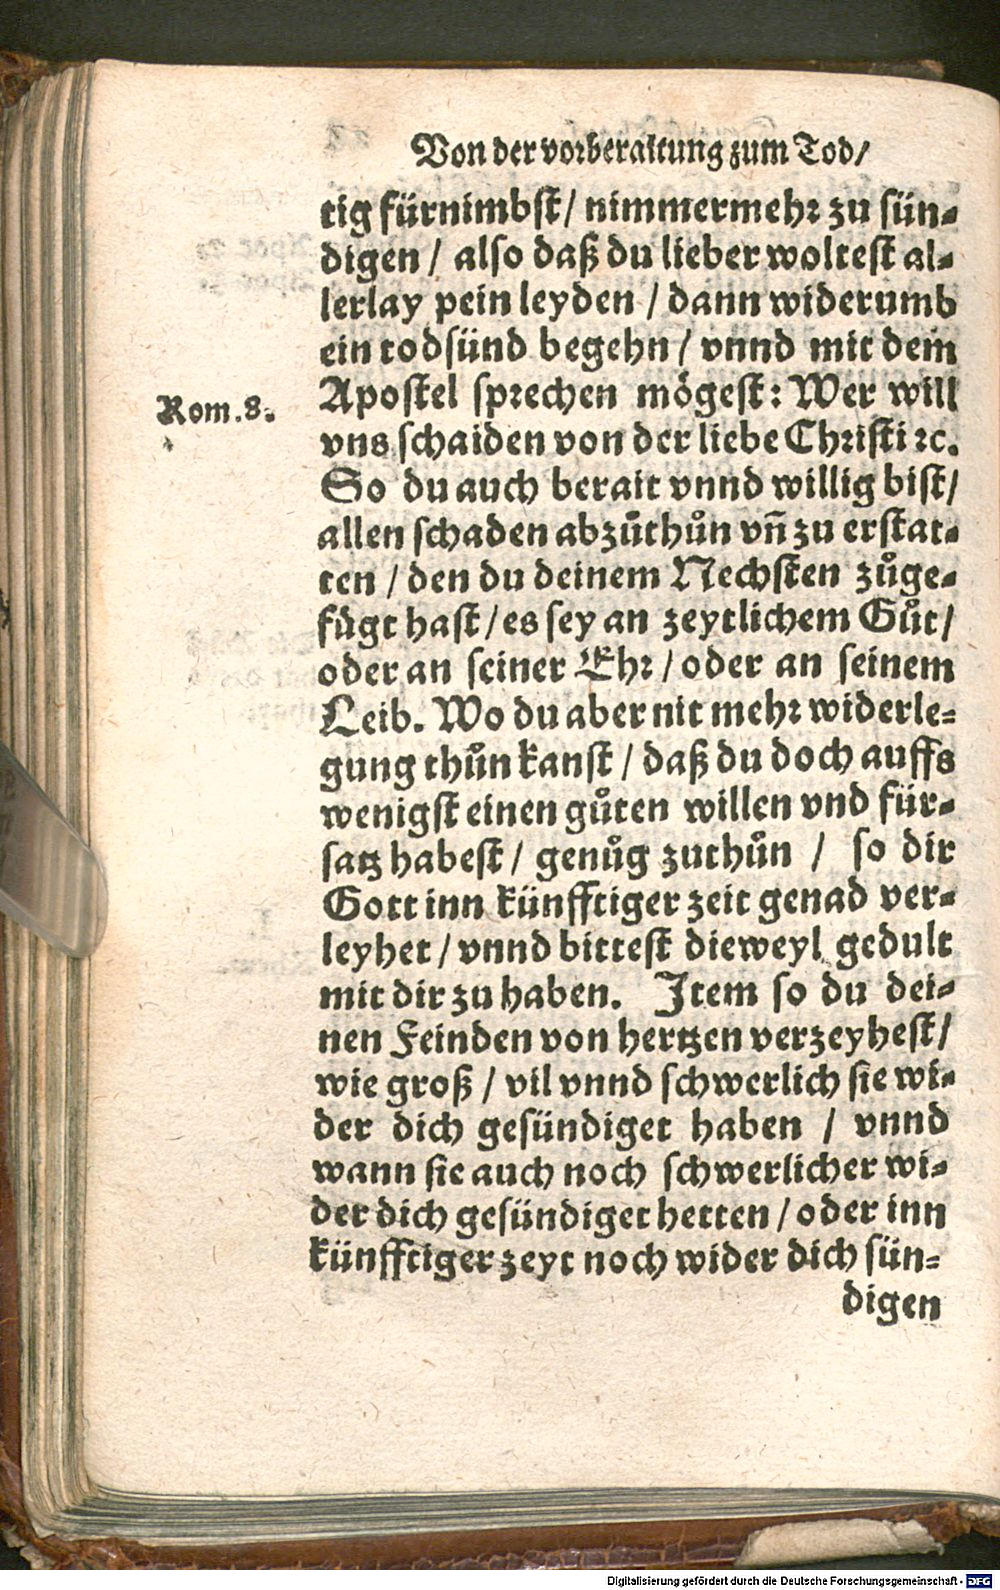 Von der vorberaittung zum Tod/
tig fürnimbst/ nimmermehr zu sün-
digen / also daß du lieber woltest al-
lerlay pein leyden / dann widerumb
ein todsünd begehn / vnnd mit dem
Apostel sprechen mögest: Wer will
Rom. 8.
vns schaiden von der liebe Christi ꝛc.
So du auch berait vnnd willig bist/
allen schaden abzůthůn vñ zu erstat-
ten / den du deinem Nechsten zůge-
fügt hast / es sey an zeytlichem Gůt/
oder an seiner Ehr / oder an seinem
Leib. Wo du aber nit mehr widerle-
gung thůn kanst / daß du doch auffs
wenigst einen gůten willen vnd für-
satz habest / genůg zuthůn / so dir
Gott inn künfftiger zeit genad ver-
leyhet / vnnd bittest dieweyl gedult
mit dir zu haben. Item so du dei-
nen Feinden von hertzen verzeyhest/
wie groß / vil vnnd schwerlich sie wi-
der dich gesündiget haben / vnnd
wann sie auch noch schwerlicher wi-
der dich gesündiget hetten / oder inn
künfftiger zeyt noch wider dich sün-
digen
Digitalisierung gefördert durch die Deutsche Forschungsgemeinschaft - DFG